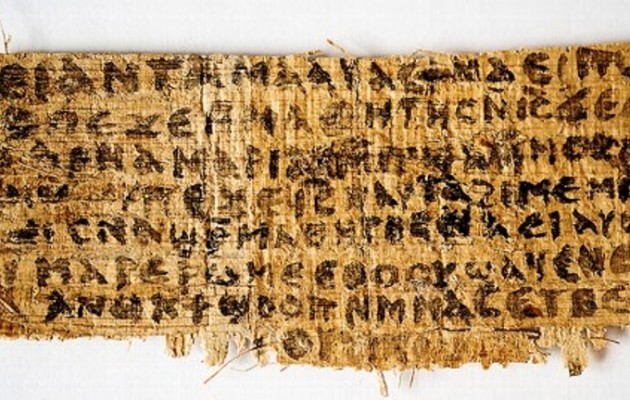 ⲉⲓ ⲁⲛ ⲧⲁⲙⲁⲁⲩ ⲁⲥϯ ⲛⲁⲉⲓ ⲡ
ⲡⲉϫⲉ ⲙⲙⲁⲑⲏⲧⲏⲥ ⲛⲓ̅ⲥ̅ ϫⲉ ⲥ
ⲁⲣⲛⲁ ⲙⲁⲣⲓⲁⲙ ⲙⲡϣⲁ ⲙⲙⲟⲥ
ⲡⲉϫⲉ ⲓ̅ⲥ̅ ⲛⲁⲩ ⲧⲁϩⲓⲙⲉ ⲙⲛ
ⲥⲛⲁϣⲣⲙⲁⲑⲏⲧⲏⲥ ⲛⲁⲉⲓ ⲁⲩⲱ
ⲙⲁⲣⲉⲣⲱⲙⲉ ⲉⲑⲟⲟⲩ ϣⲁϥⲉ ⲛⲉ
ⲁⲛⲟⲕ ϯϣⲟⲟⲡ ⲛⲙⲙⲁⲥ ⲉⲧⲃⲉ